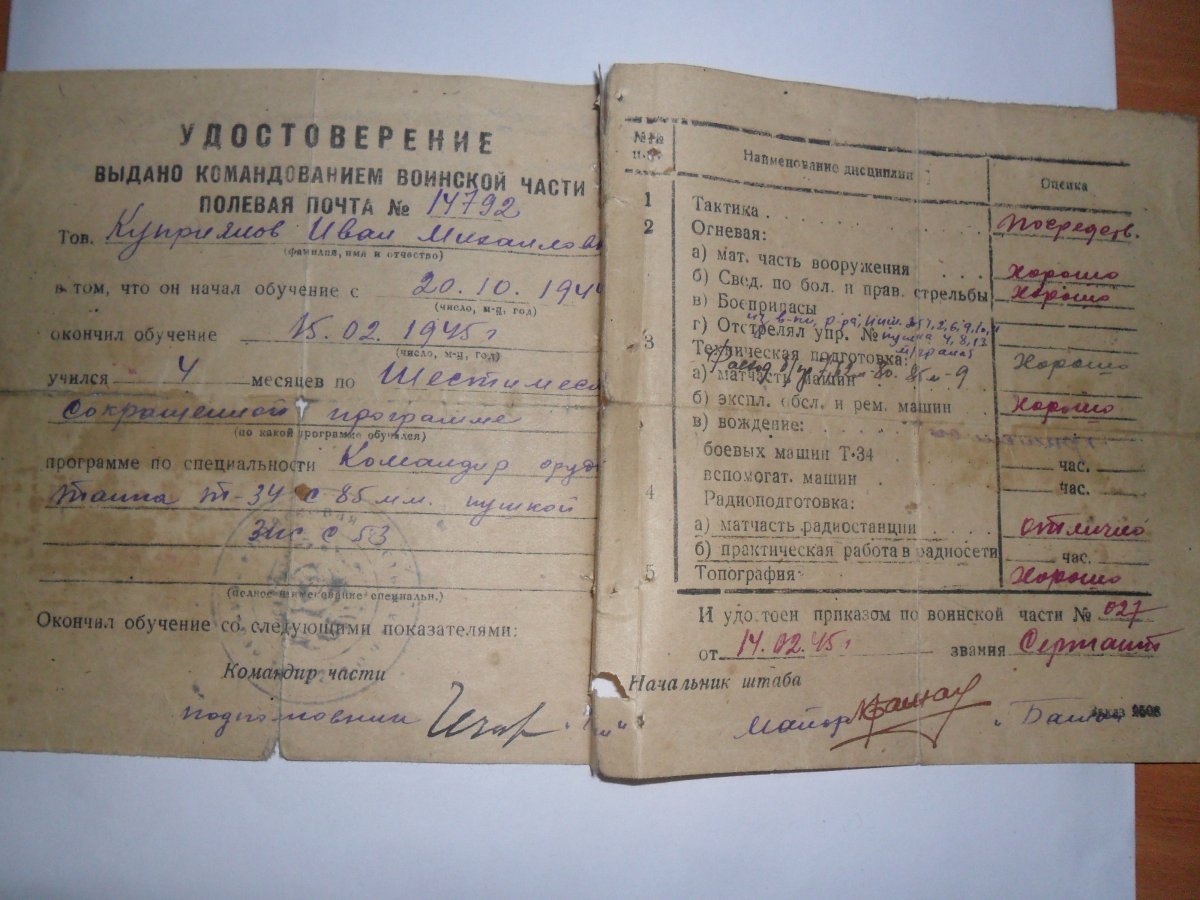 УДОСТОВЕРЕНИЕ
ВЫДАНО КОМАНДОВАНИЕМ ВОИНСКОЙ ЧАСТИ
ПОЛЕВАЯ ПОЧТА № 14792
Тов. Куприянов Иван Михайлов
(фамилия, имя и отчество)
в том, что он начал обучение с 20.10. 194
(число, м-ц, год)
окончил обучение 15.02. 1945 г
(число, м-ц, год)
учился 4 месяцев по Шестимеся
сокращенной программе
(по какой программе обучался)
программе по специальности Командир оруд
танка т-34 с 85 мм. пушкой
Зис с 53
(полное наименование специальн.)
Окончил обучение со следующими показателями:
Командир части
подполковник
№№ п-п Наименование дисциплин Оценка
1 Тактика посредств.
2 Огневая:
а) мат. часть вооружения хорошо
б) Свед. по бол. и прав. стрельбы хорошо
в) Боеприпасы
г) Отстрелял упр. № пушка 4, 8, 13
3 Техническая подготовка:
а) матчасть машин 85 м-9 хорошо
б) экспл. обсл. и рем. машин хорошо
в) вождение:
боевых машин Т-34 час.
вспомогат. машин час.
4 Радиоподготовка:
а) матчасть радиостанции отлично
б) практическая работа в радиосети час.
5 Топография хорошо
И удостоен приказом по воинской части № 027
от 14.02.45 г звания Сержант
Начальник штаба
Майор